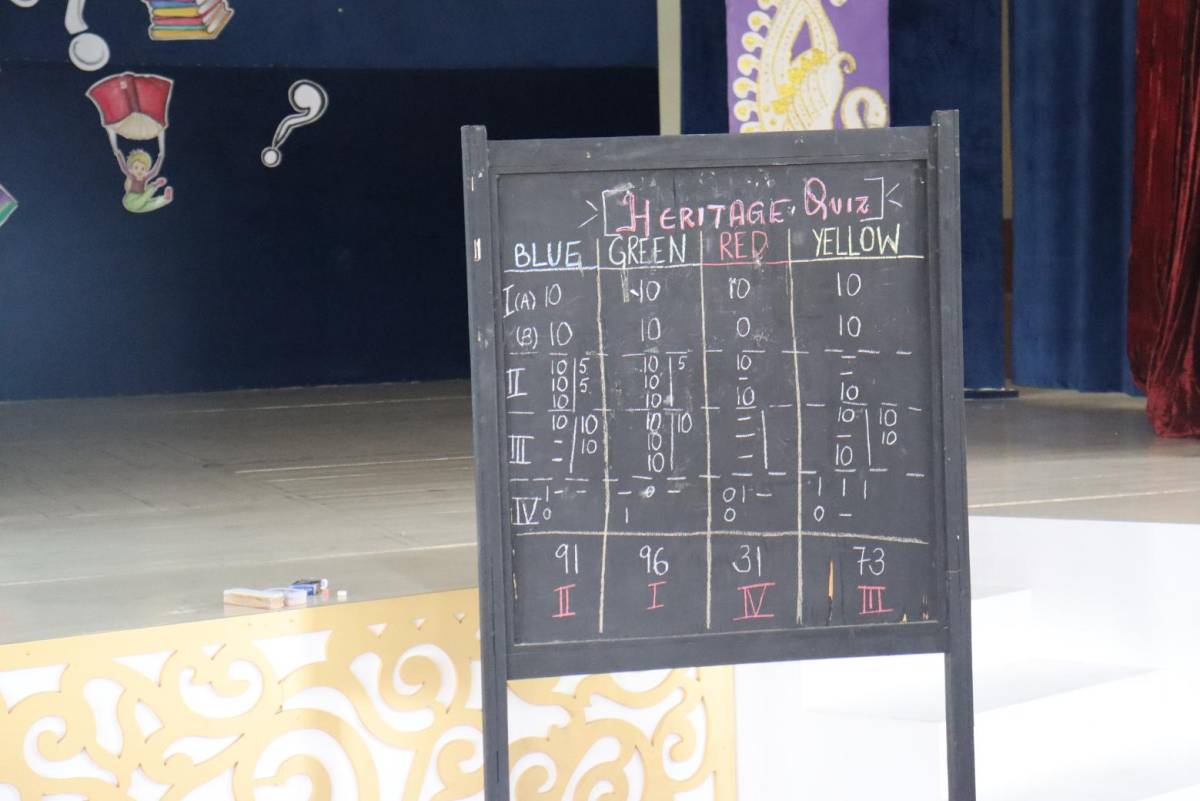 [HERITAGE QUIZ]
BLUE GREEN RED YELLOW
I(A) 10 10 10 10
(B) 10 10 0 10
II 10 5 10 5 10 -
10 5 10 - -
10 10 10 10
III 10 10 10 10 - 10 10
- 10 10 - - 10
- 10 - 10
IV 1 - - - 0 - 0 1 - 1 1 1
0 1 0 0 -
91 96 31 73
II I IV III